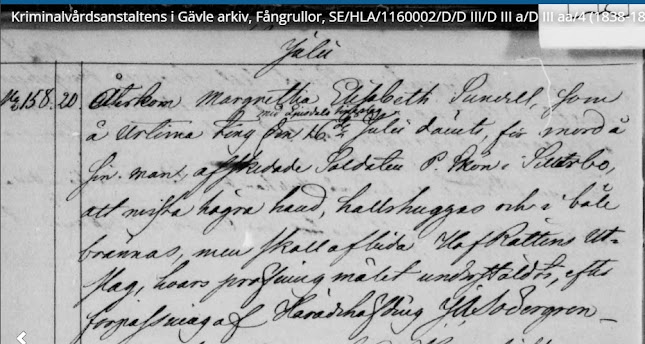 Kriminalvårdsanstaltens i Gävle arkiv, Fångrullor, SE/HLA/1160002/D/D III/D III a/D III aa/4 (1838-18
Julii
No 158. 20. Återkom Margretha Elisabeth Sundell, som
med Ljusdals
å Urtima Ting den 16de Julii dömts, för mord å
sin man, afskedade Soldaten P. Skön i
att mista högra hand, halshuggas och i båle
brännas, men skall afbida HofRättens Ut-
slag, hvars pröfning målet underställdts, efter
forpassning af Häradshöfding Södergren